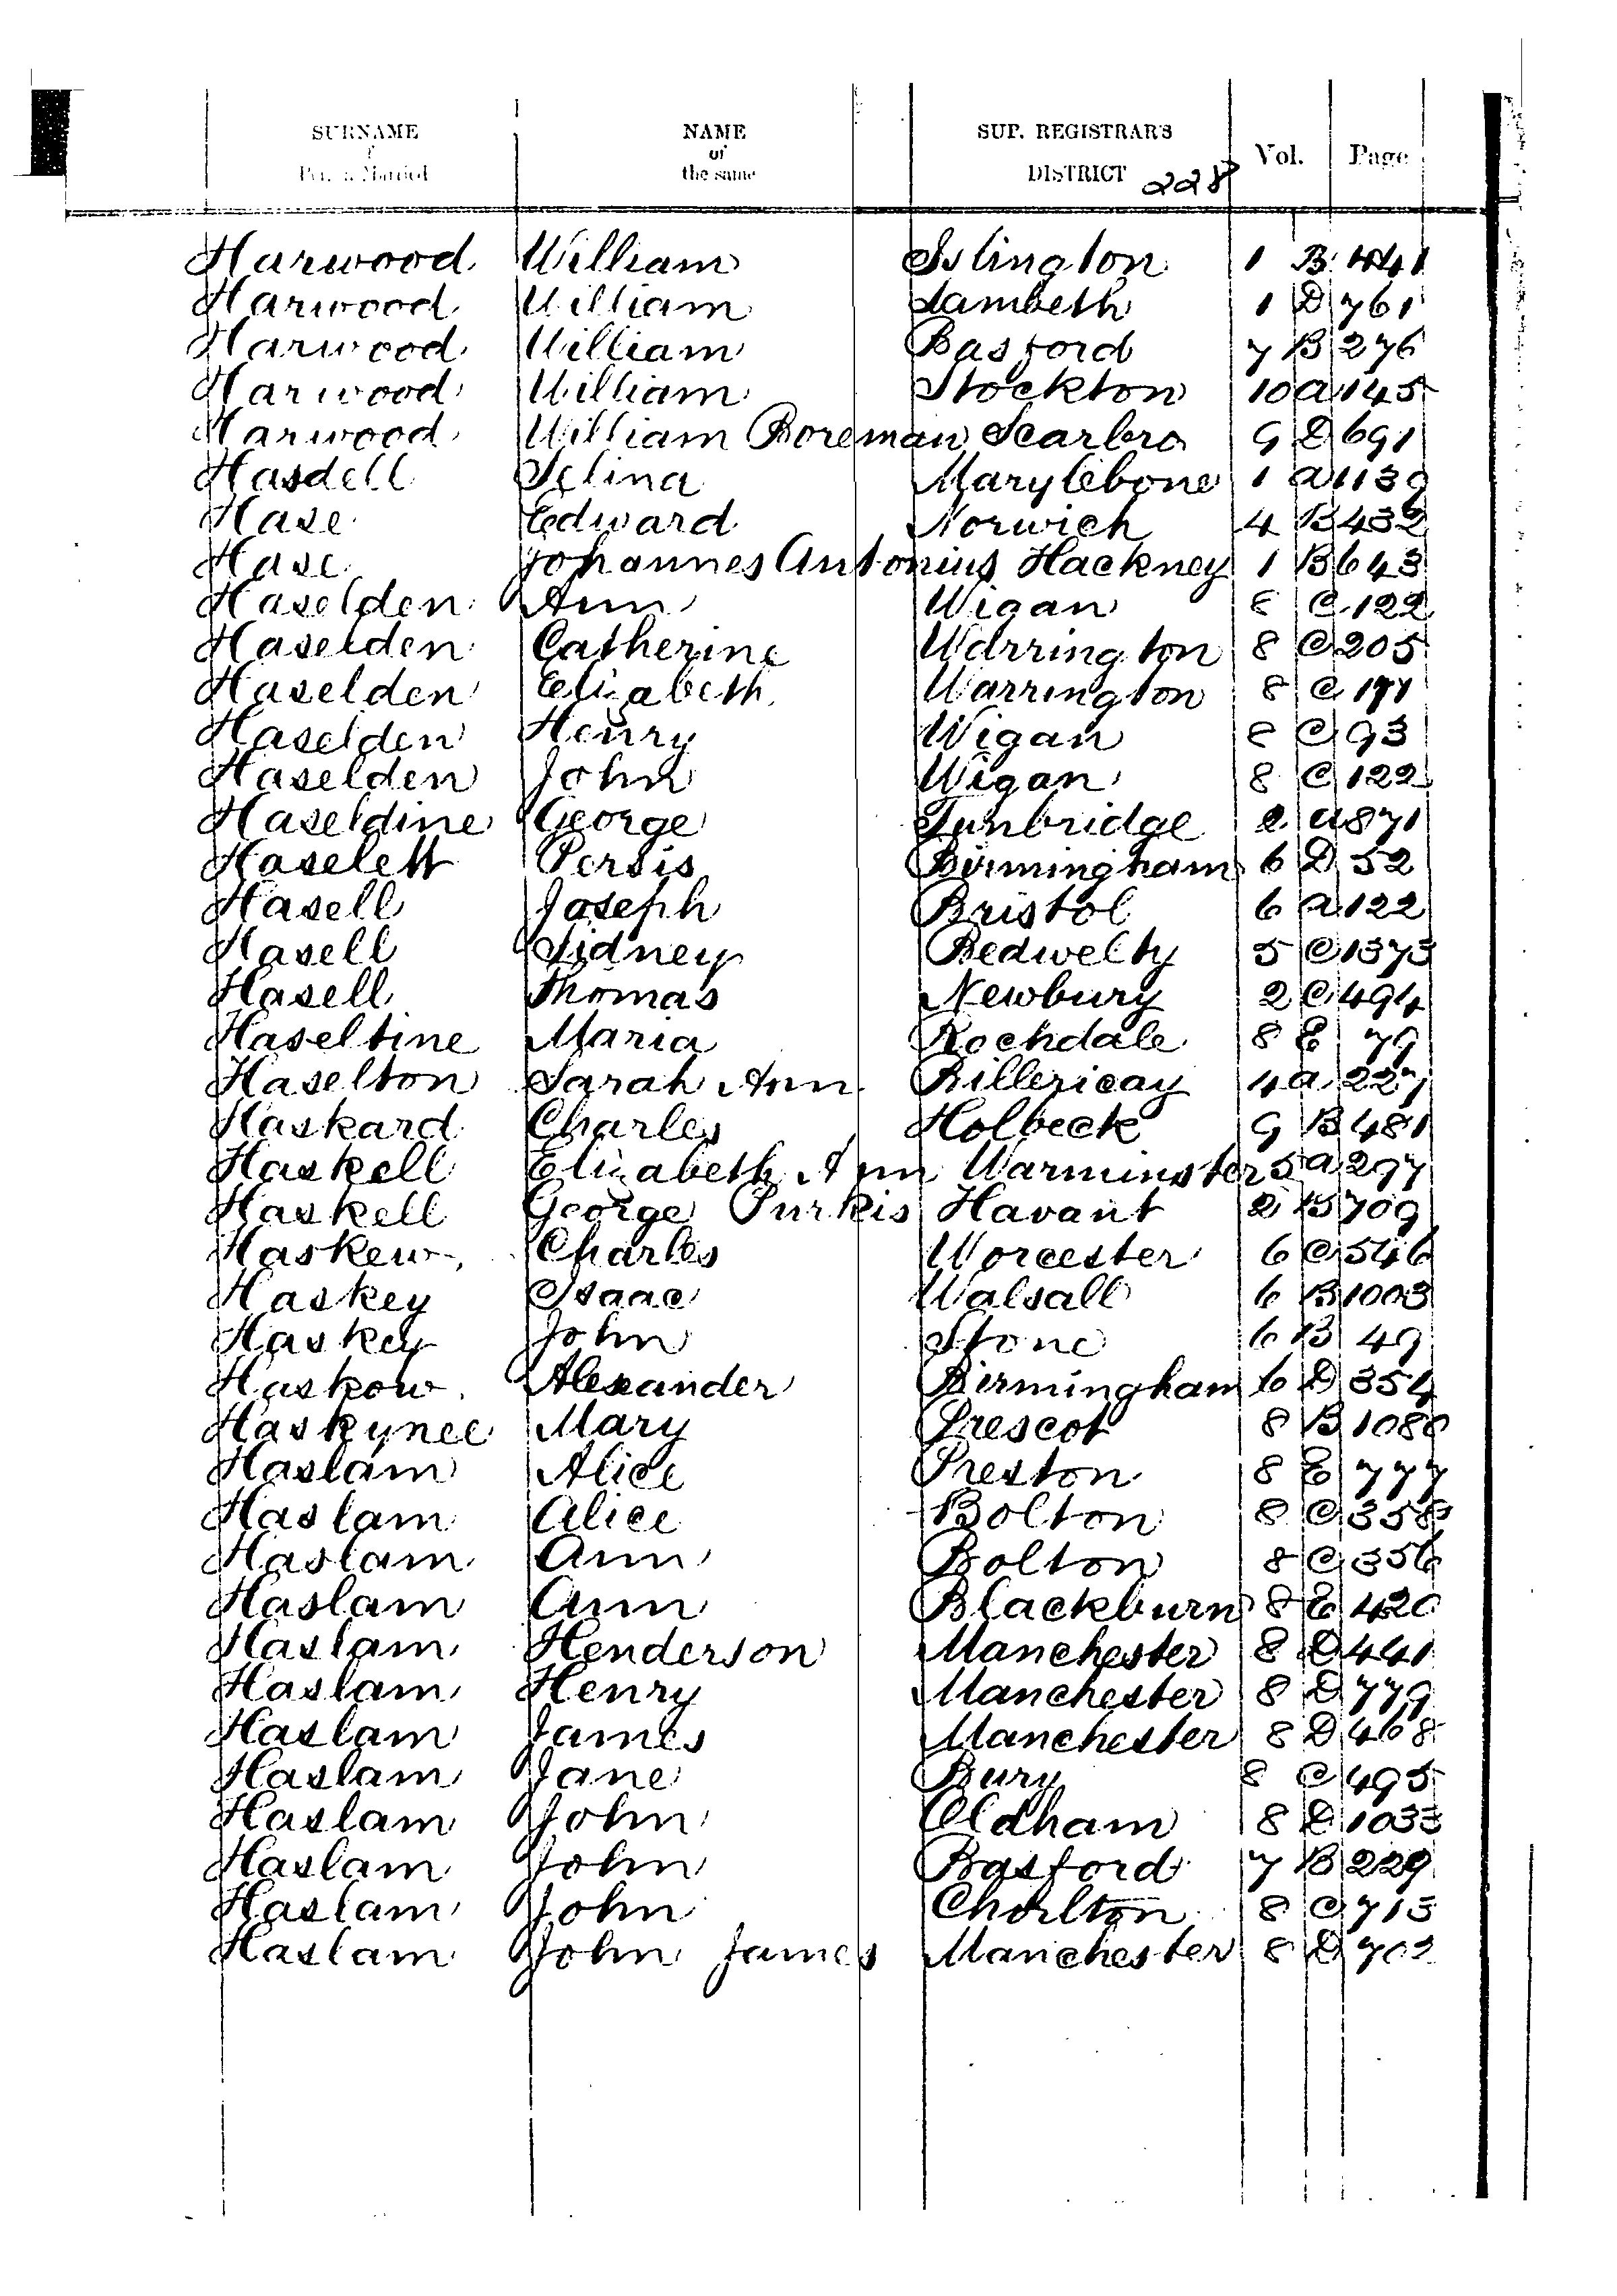 SURNAME NAME SUP. REGISTRAR'S Vol. Page
of
Married the same DISTRICT 228
Harwood William Islington 1 B 441
Harwood William Lambeth 1 D 761
Harwood William Basford 7 B 276
Harwood William Stockton 10 a 145
Harwood William Boreman Scarbro 9 D 691
Hasdell Selina Marylebone 1 a 1139
Hase Edward Norwich 4 B 432
Hase Johannes Antonius Hackney 1 B 643
Haselden Ann Wigan 8 C 122
Haselden Catherine Warrington 8 C 205
Haselden Elizabeth Warrington 8 C
Haselden Henry Wigan 8 C 93
Haselden John Wigan 8 C 122
Haseldine George Tunbridge 2 a 871
Haselett Persis Birmingham 6 D 52
Hasell Joseph Bristol 6 a 122
Hasell Sidney Bedwelty 5 C 1373
Hasell Thomas Newbury 2 C 494
Haseltine Maria Rochdale 8 E 79
Haselton Sarah Ann Billericay 4 a 227
Haskard Charles Holbeck 9 B 481
Haskell Elizabeth Ann Warminster 5 a 297
Haskell George Purkis Havant 2 B 709
Haskew Charles Worcester 6 C 546
Haskey Isaac Walsall 6 B 1003
Haskey John Stone 6 B 49
Haskow Alexander Birmingham 6 D 354
Haskynee Mary Prescot 8 B
Haslam Alice Preston 8 E 777
Haslam Alice Bolton 8 C 358
Haslam Ann Bolton 8 C 356
Haslam Ann Blackburn 8 E 420
Haslam Henderson Manchester 8 D 441
Haslam Henry Manchester 8 D 779
Haslam James Manchester 8 D 468
Haslam Jane Bury 8 C 495
Haslam John Oldham 8 D 1033
Haslam John Basford 7 B 229
Haslam John Chorlton 8 C 713
Haslam John James Manchester 8 D 702